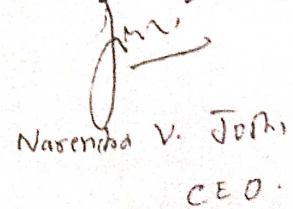 Narendra V. Joshi
CEO.